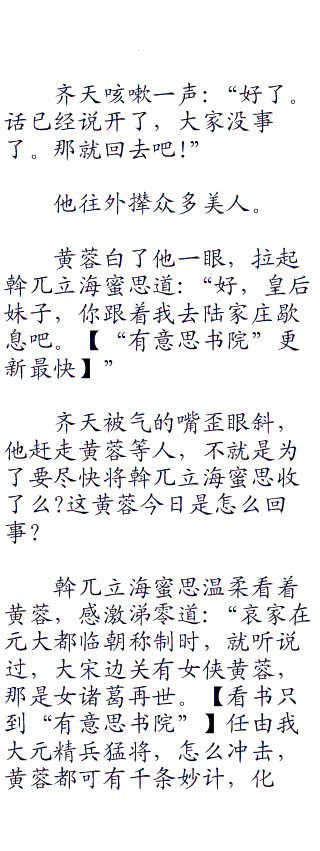 齐天咳嗽一声：“好了。
话已经说开了，大家没事
了。那就回去吧！”
他往外撵众多美人。
黄蓉白了他一眼，拉起
斡兀立海蜜思道：“好，皇后
妹子，你跟着我去陆家庄歇
息吧。【“有意思书院”更
新最快】”
齐天被气的嘴歪眼斜，
他赶走黄蓉等人，不就是为
了要尽快将斡兀立海蜜思收
了么?这黄蓉今日是怎么回
事?
斡兀立海蜜思温柔看着
黄蓉，感激涕零道：“哀家在
元大都临朝称制时，就听说
过，大宋边关有女侠黄蓉，
那是女诸葛再世。【看书只
到“有意思书院”】任由我
大元精兵猛将，怎么冲击，
黄蓉都可有千条妙计，化